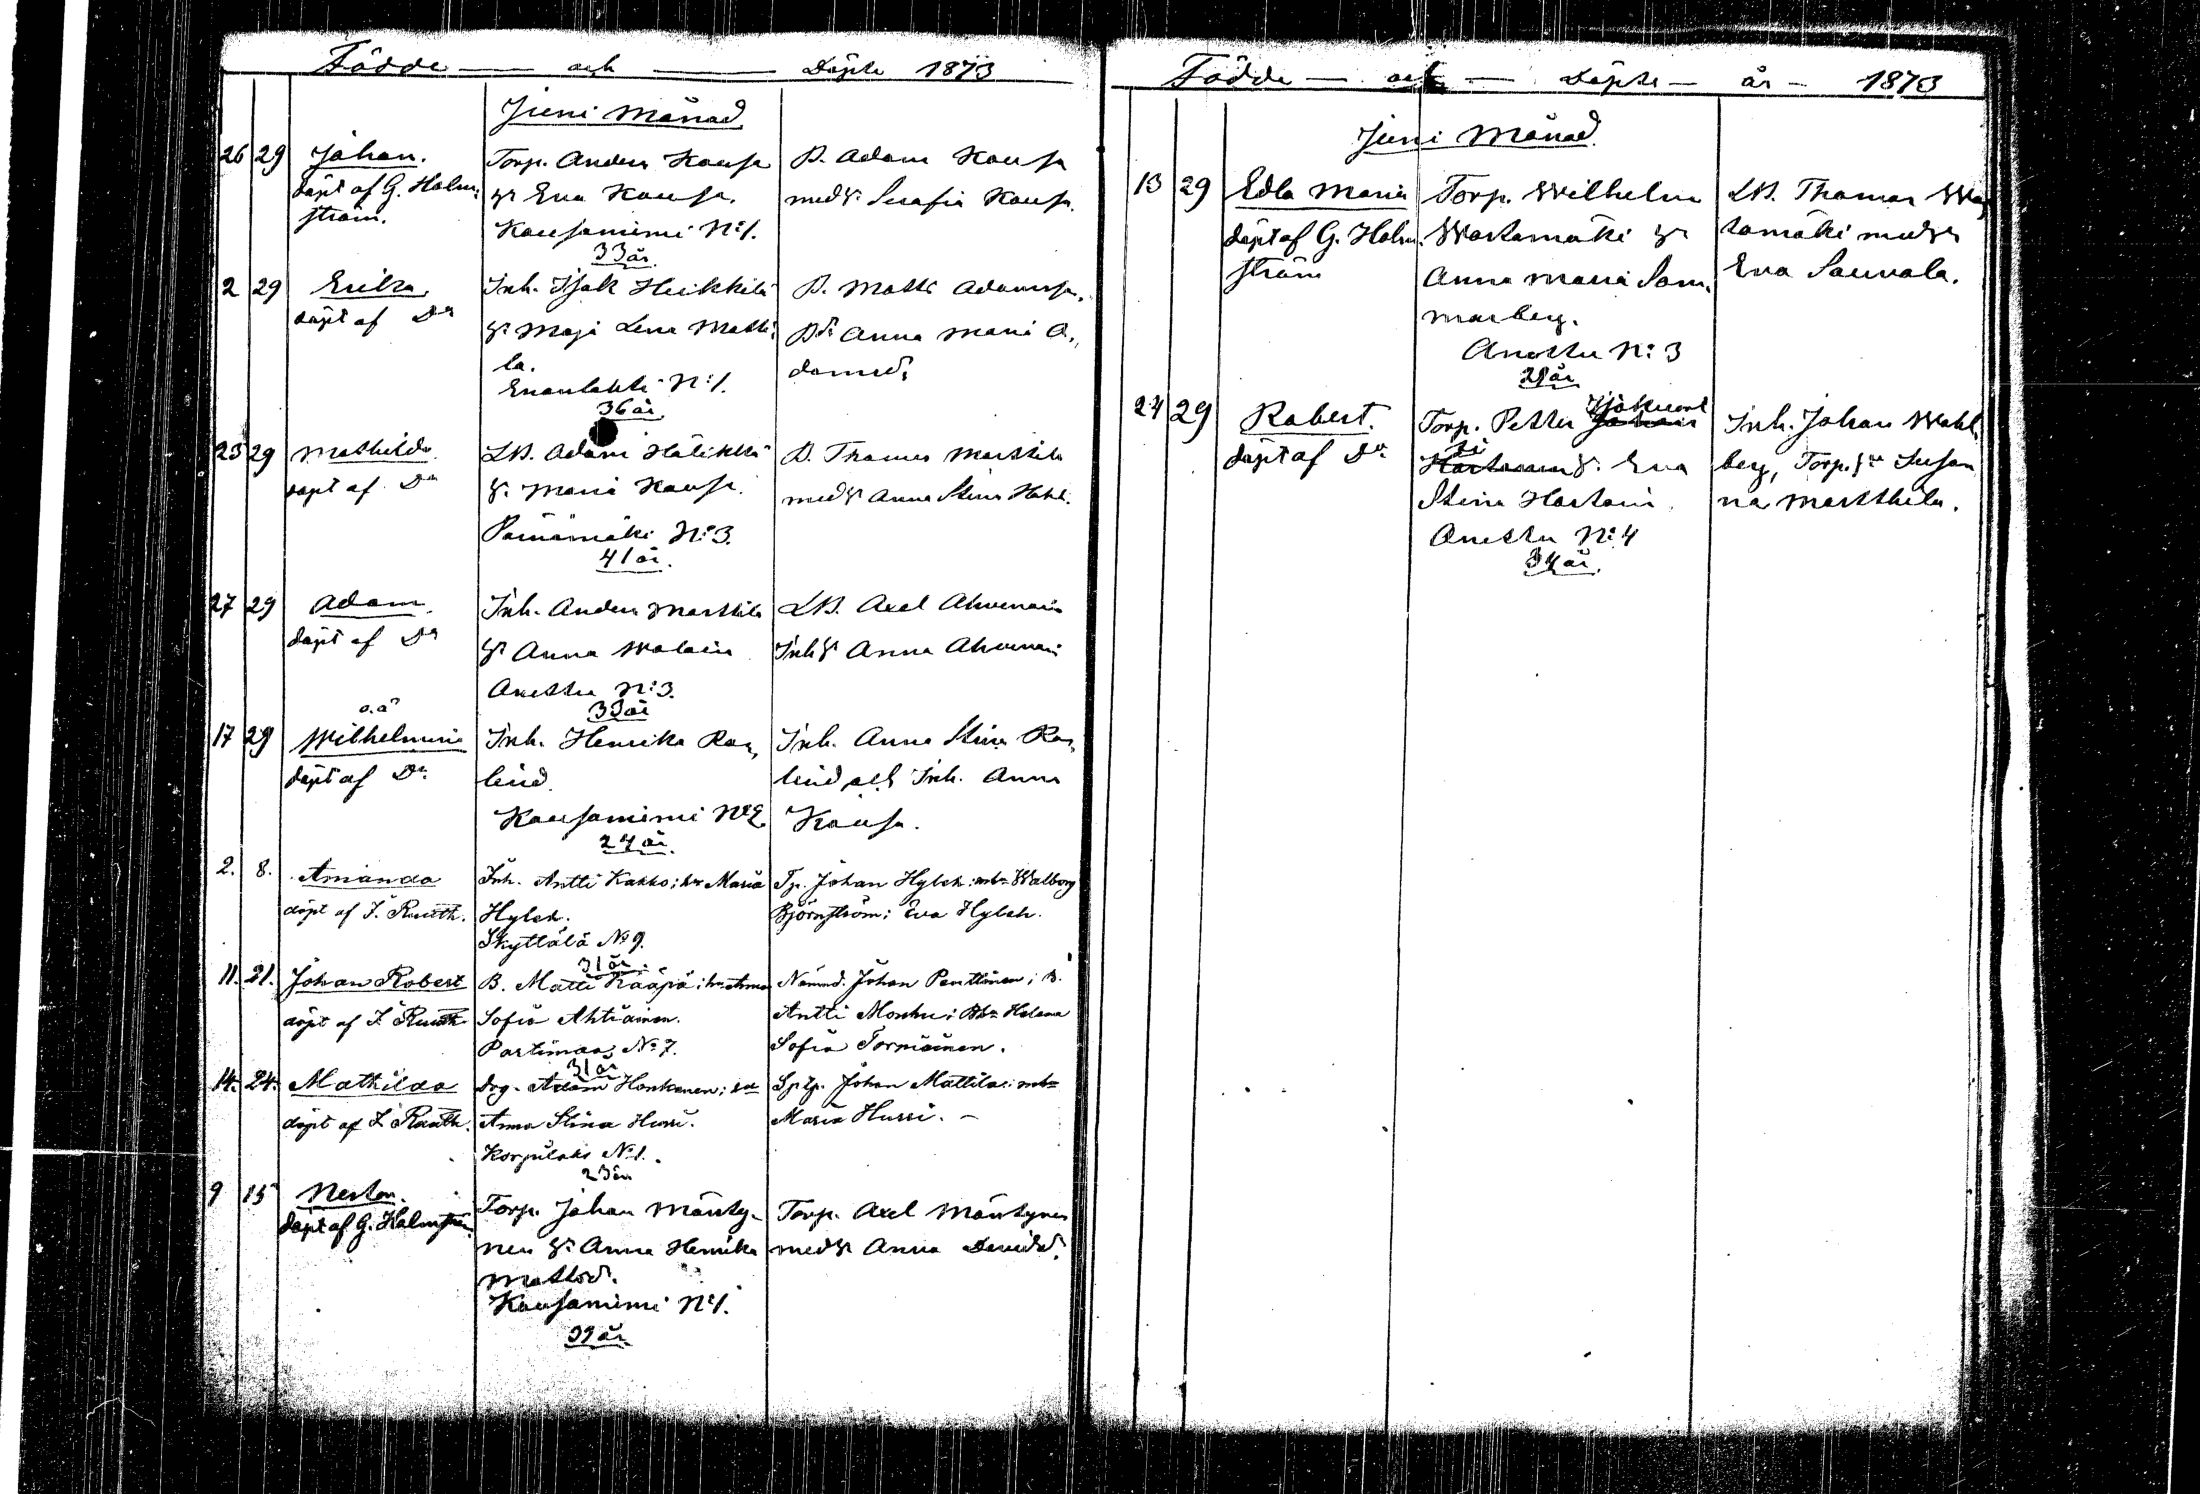 Födde — och — Döpte 1873
Juni Månad
26 29 Johan.
döpt af G. Holm-
ström.
Torp. Anders Kausa
h. Eva Kausa.
Kausaniemi N:1.
33 år
B. Adam Kausa
med h. Serafia Kausa.
2 29 Erika
döpt af Do
Inh. Isak Heikkilä
h. Maja Lena Matti-
la.
Enonlahti N:1.
36 år
B. Matts Adamss.
Anna Maria A-
damsd.
23 29 Mathilda
döpt af Do
LB. Adam
h. Maria Kausa.
N:3.
41 år.
B. Thomas Marttila
med h. Anna Stina
27 29 Adam
döpt af Do
Inh. Anders Marttila
h. Anna
Anttu N:3.
33 år
LB. Axel Ahvenain
Inh. h. Anna Ahvenain
17 29 o.ä. Wilhelmina
döpt af Do
Inh. Henrika Ros-
lind.
Kausaniemi N:2.
24 år.
Inh. Anna Stina Ros-
lind och Inh. Anna
Kausa.
2. 8. Amanda
döpt af J. Ruuth.
Inh. Antti Kakko; hu Maria
Hyleh.
Skyttälä No 9.
31 år.
Tp. Johan Hyleh; Walborg
Björnström; Eva Hyleh.
11. 21. Johan Robert
döpt af J. Ruuth
B. Matti Kääpä; hu Anna
Sofia Ahtiainen.
Partimaa No 7.
31 år
Nämnd. Johan Penttinen; B.
Antti Monhu; Helena
Sofia Torniainen.
14. 24. Mathilda
döpt af J. Ruuth.
Drg. Adam Honkanen; hu
Anna Stina Hurri.
Korpilaks No 1.
23 år
Johan Mattila;
Maria Hurri. —
9 15 Nestor.
döpt af G. Holmström
Torp. Johan Mänty-
nen h. Anna Henrika
Mattsd.
Kausaniemi N:1.
39 år
Torp. Axel Mäntynen
med h. Anna Davidsd.
Födde — och — Döpte — år — 1873
Juni Månad
13 29 Edla Maria
döpt af G. Holm-
ström
Torp. Wilhelm
Wartamäki h.
Anna Maria Som-
marberg.
Anttu N:3
28 år
LB. Thomas War-
tamäki med h.
Eva Sauvala.
24 29 Robert.
döpt af Do
Torp. Petter
h. Eva
Stina Hartain.
Anttu N:4
34 år.
Inh. Johan Wahl-
berg, Torp. h. Susan-
na Marttila.